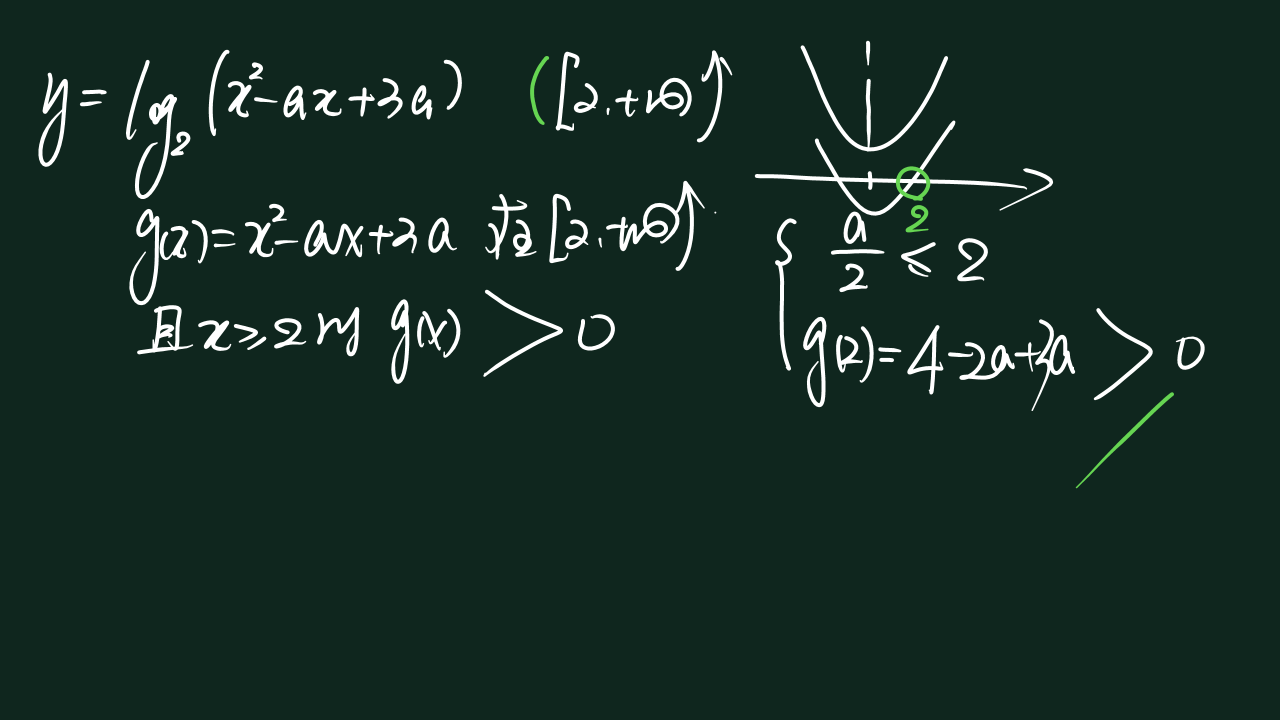 y = log₂(x²-ax+3a) ([2,+∞)↑
g(x)=x²-ax+3a 在[2,+∞)↑
且x≥2时 g(x)>0
2
{ a/2 ≤ 2
g(2)=4-2a+3a>0